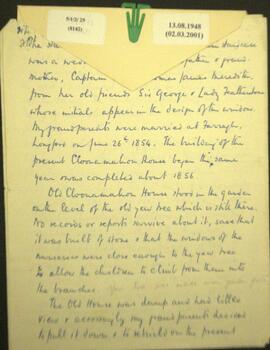 5/1/2/25
(8142)
13.08.1948
(02.03.2001)
The Staircase
was a wedding
mother, Captain James Meredith
from her old friends Sir George & Lady Featherston
whose initials appear in the design of the window.
My grandparents were married at Farragh,
Longford on June 26th 1854. The building of the
present Cloonamahon House began the same
year & was completed about 1856
Old Cloonamahon House stood in the garden
on the level of the old yew tree which is still there.
No records or reports survive about it, save that
it was built of stone & that the windows of the
nurseries were close enough to the yew tree
to allow the children to climb from them into
the branches.
The Old House was damp and had little
view & accordingly my grandparents decided
to pull it down & to rebuild on the present